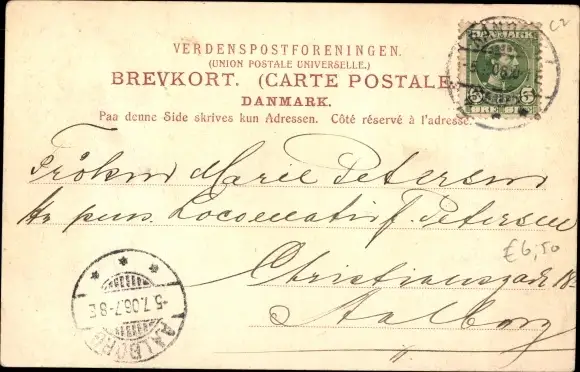 VERDENSPOSTFORENINGEN.
(UNION POSTALE UNIVERSELLE.)
BREVKORT. (CARTE POSTALE.
DANMARK.
Paa denne Side skrives kun Adressen. Côté réservé à l'adresse.
DANMARK
5 5
Frøken Marie Petersen
pens. Locomotivf. Petersen
€6,50
Christiansgade 18
Aalborg
5.7.06.7-8 E
AALBORG